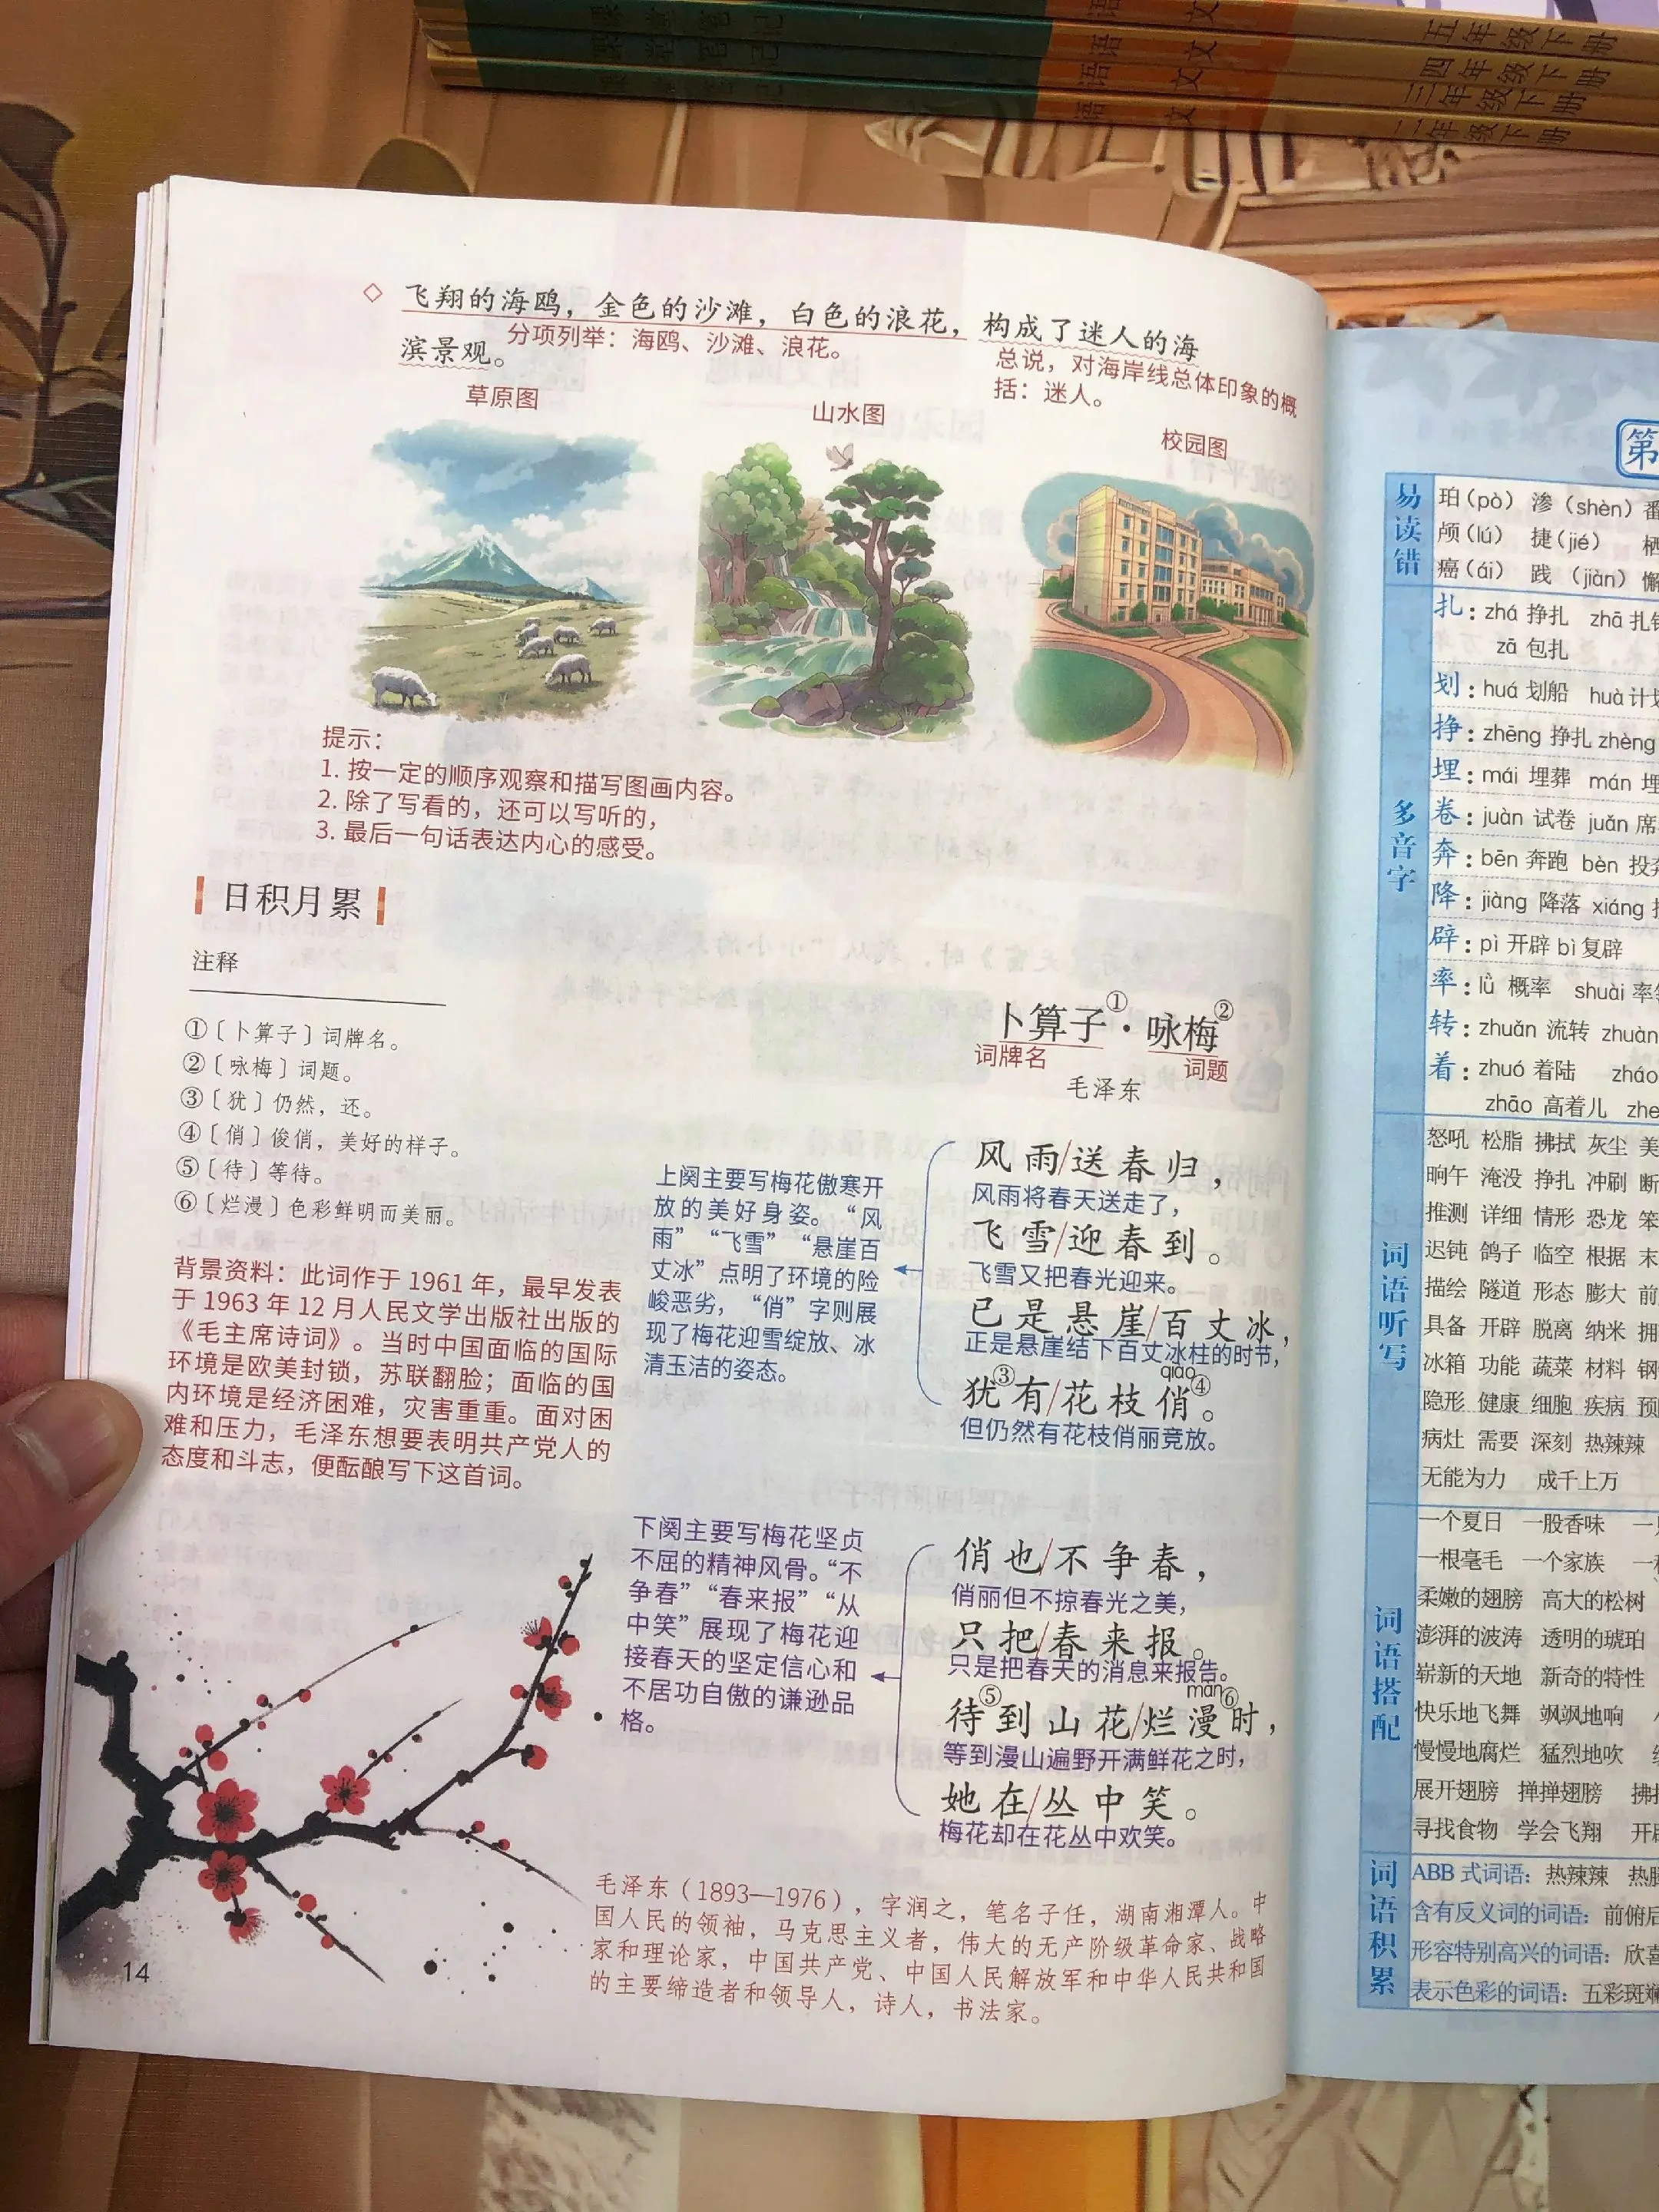 五年级下册
四年级下册
三年级下册
二年级下册
飞翔的海鸥，金色的沙滩，白色的浪花，构成了迷人的海
滨景观。
分项列举：海鸥、沙滩、浪花。
总说，对海岸线总体印象的概
括：迷人。
草原图
山水图
校园图
提示：
1. 按一定的顺序观察和描写图画内容。
2. 除了写看的，还可以写听的，
3. 最后一句话表达内心的感受。
日积月累
注释
①〔卜算子〕词牌名。
②〔咏梅〕词题。
③〔犹〕仍然，还。
④〔俏〕俊俏，美好的样子。
⑤〔待〕等待。
⑥〔烂漫〕色彩鲜明而美丽。
背景资料：此词作于 1961 年，最早发表
于 1963 年 12 月人民文学出版社出版的
《毛主席诗词》。当时中国面临的国际
环境是欧美封锁，苏联翻脸；面临的国
内环境是经济困难，灾害重重。面对困
难和压力，毛泽东想要表明共产党人的
态度和斗志，便酝酿写下这首词。
卜算子①·咏梅②
词牌名
词题
毛泽东
上阕主要写梅花傲寒开
放的美好身姿。“风
雨”“飞雪”“悬崖百
丈冰”点明了环境的险
峻恶劣，“俏”字则展
现了梅花迎雪绽放、冰
清玉洁的姿态。
风雨/送春归，
风雨将春天送走了，
飞雪/迎春到。
飞雪又把春光迎来。
已是悬崖/百丈冰，
正是悬崖结下百丈冰柱的时节，
qiào
犹③有/花枝俏④。
但仍然有花枝俏丽竞放。
下阕主要写梅花坚贞
不屈的精神风骨。“不
争春”“春来报”“从
中笑”展现了梅花迎
接春天的坚定信心和
不居功自傲的谦逊品
格。
俏也/不争春，
俏丽但不掠春光之美，
只把/春来报。
只是把春天的消息来报告。
màn
待⑤到山花/烂漫⑥时，
等到漫山遍野开满鲜花之时，
她在/丛中笑。
梅花却在花丛中欢笑。
毛泽东（1893—1976），字润之，笔名子任，湖南湘潭人。中
国人民的领袖，马克思主义者，伟大的无产阶级革命家、战略
家和理论家，中国共产党、中国人民解放军和中华人民共和国
的主要缔造者和领导人，诗人，书法家。
14
第
易读错
珀（pò） 渗（shèn）番
颅（lú） 捷（jié）
癌（ái） 践（jiàn）懈
多音字
扎：zhá 挣扎 zhā 扎
zā 包扎
划：huá 划船 huà 计划
挣：zhēng 挣扎 zhèng
埋：mái 埋葬 mán 埋
卷：juàn 试卷 juǎn 席
奔：bēn 奔跑 bèn 投奔
降：jiàng 降落 xiáng
辟：pì 开辟 bì 复辟
率：lǜ 概率 shuài 率
转：zhuǎn 流转 zhuàn
着：zhuó 着陆 zháo
zhāo 高着儿 zhe
词语听写
怒吼 松脂 拂拭 灰尘 美
晌午 淹没 挣扎 冲刷 断
推测 详细 情形 恐龙 笨
迟钝 鸽子 临空 根据 末
描绘 隧道 形态 膨大 前
具备 开辟 脱离 纳米 拥
冰箱 功能 蔬菜 材料 钢
隐形 健康 细胞 疾病 预
病灶 需要 深刻 热辣辣
无能为力 成千上万
词语搭配
一个夏日 一股香味
一根毫毛 一个家族
柔嫩的翅膀 高大的松树
澎湃的波涛 透明的琥珀
崭新的天地 新奇的特性
快乐地飞舞 飒飒地响
慢慢地腐烂 猛烈地吹
展开翅膀 掸掸翅膀 拂
寻找食物 学会飞翔 开
词语积累
ABB 式词语：热辣辣 热
含有反义词的词语：前俯后
形容特别高兴的词语：欣喜
表示色彩的词语：五彩斑斓